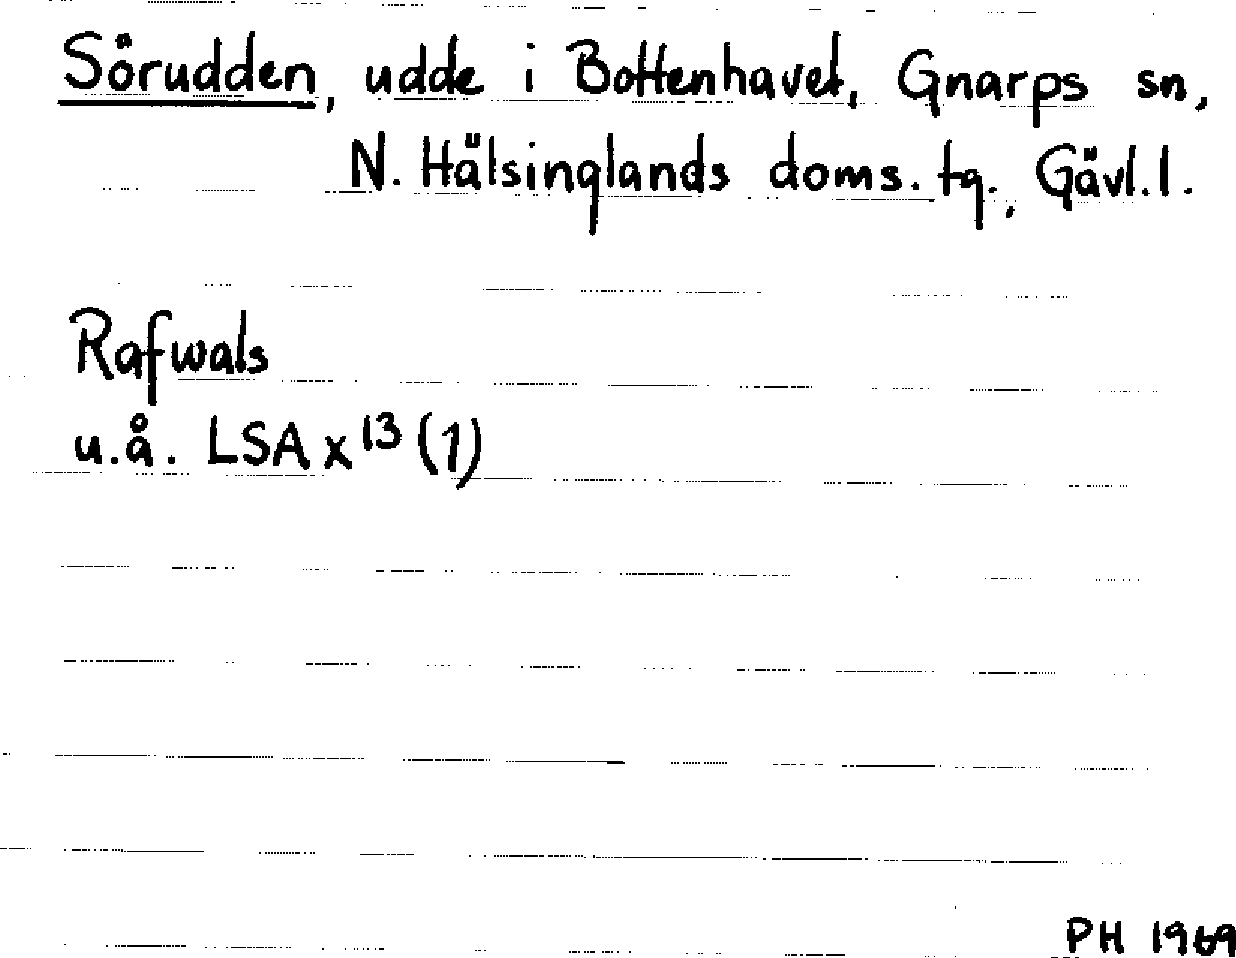 Sörudden, udde i Bottenhavet, Gnarps sn,
N. Hälsinglands doms. tg., Gävl.l.
Rafwals
u.å. LSA x 13 (1)
PH 1969